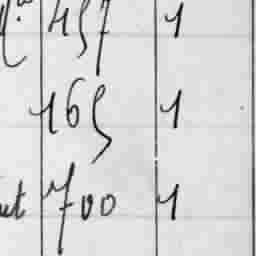 457 1
165 1
700 1